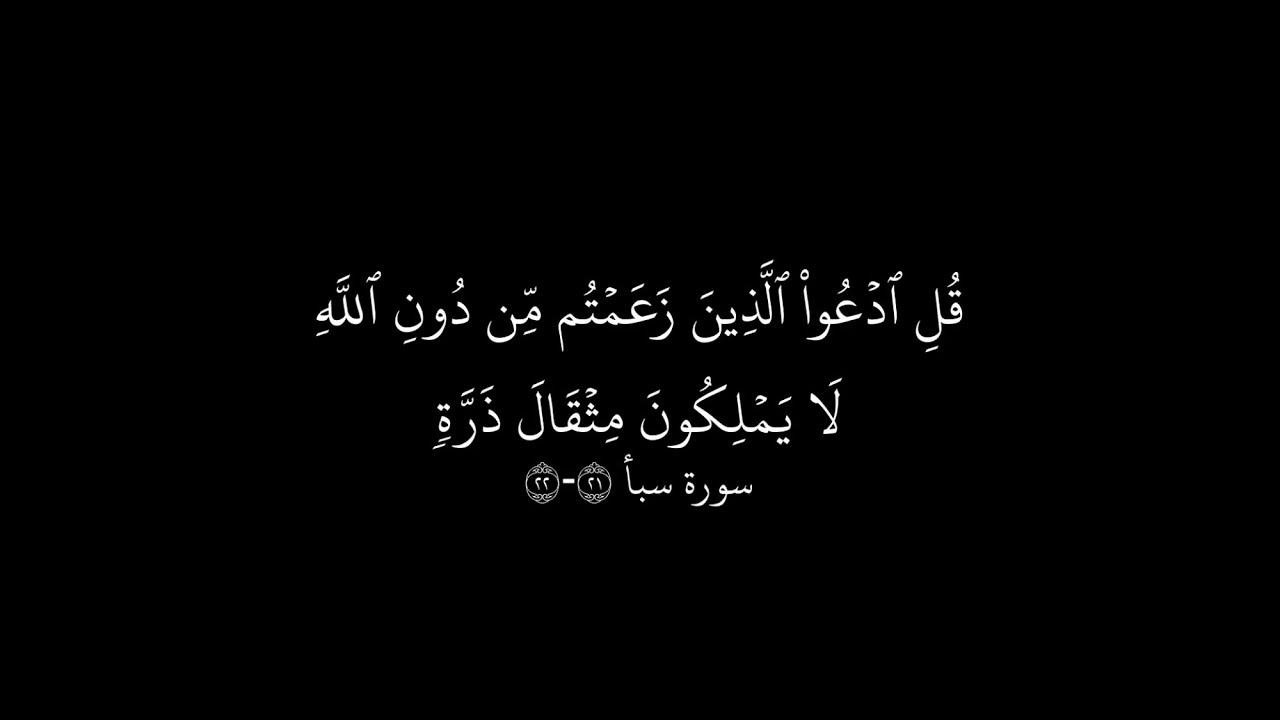 قُلِ ٱدۡعُواْ ٱلَّذِينَ زَعَمۡتُم مِّن دُونِ ٱللَّهِ
لَا يَمۡلِكُونَ مِثۡقَالَ ذَرَّةٖ
سورة سبأ ٢١-٢٢